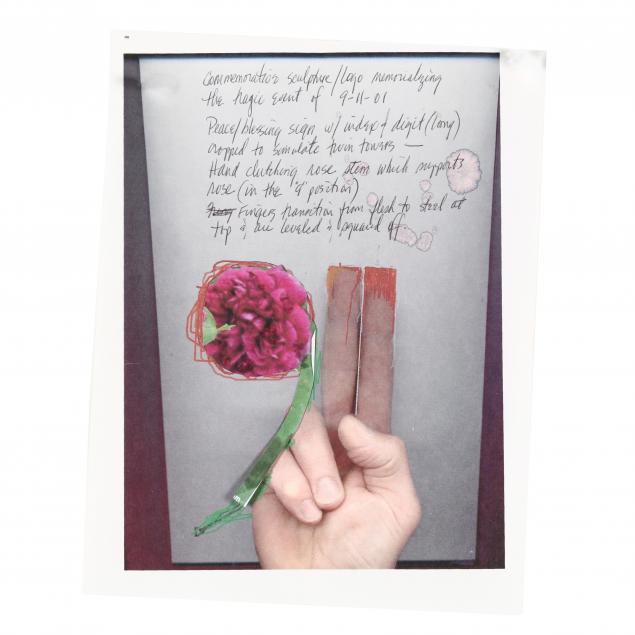 Commemorative sculpture/logo memorializing
the tragic event of 9-11-01
Peace/blessing sign w/ index & digit (long)
cropped to simulate twin towers —
Hand clutching rose stem which supports
rose (in the "9" position)
Fingers transition from flesh to steel at
top & are leveled & squared off